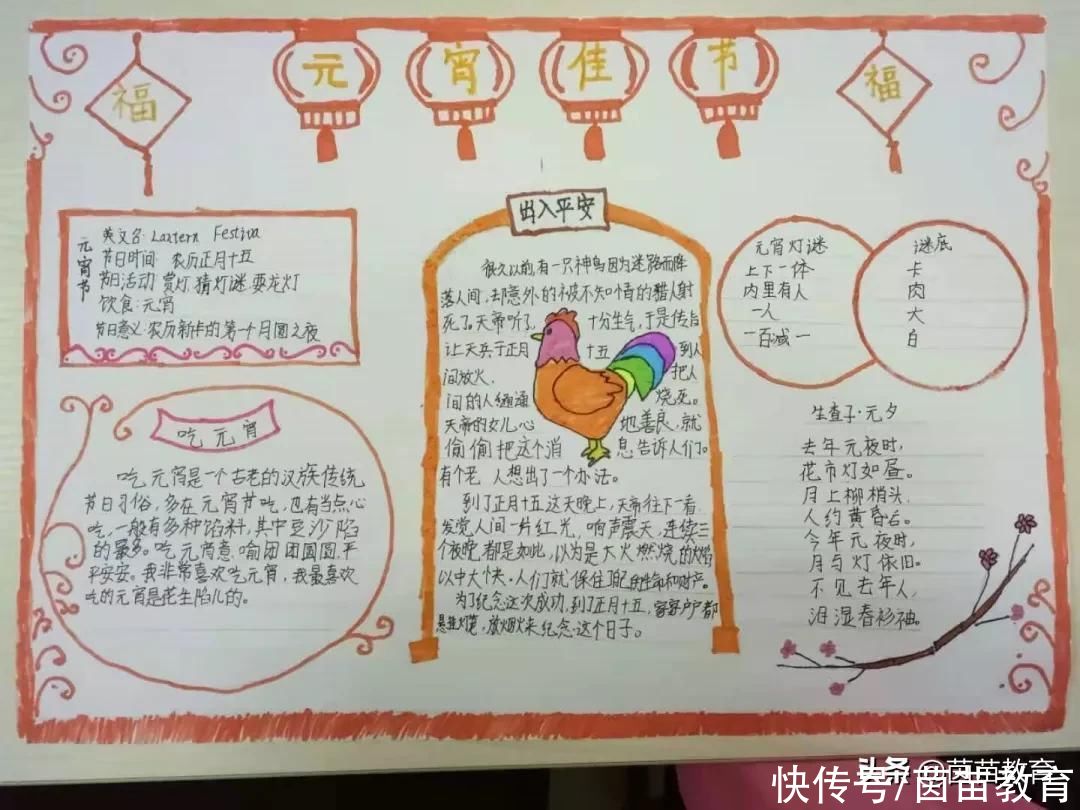 元宵佳节
福
福
元宵节
英文名: Lantern Festiva
节日时间: 农历正月十五
节日活动 赏灯.猜灯谜.耍龙灯
饮食:元宵
节日意义:农历新年的第一个月圆之夜
吃元宵
吃元宵是一个古老的汉族传统
节日习俗,多在元宵节吃,也有当点心
吃,一般有多种馅料,其中豆沙馅
的最多。吃元宵意喻团团圆圆,平
平安安。我非常喜欢吃元宵,我最喜欢
吃的元宵是花生馅儿的。
出入平安
很久以前,有一只神鸟因为迷路而降
落人间,却意外的被不知情的猎人射
死了。天帝听了, 十分生气,于是传旨
让天兵于正月 十五 到人
间放火, 把人
间的人 烧死。
天帝的女儿心 地善良,就
偷偷把这个消 息告诉人们。
有个老 人想出了一个办法。
到了正月十五这天晚上,天帝往下一看.
发觉人间一片红光,响声震天,连续三
个夜晚都是如此,以为是大火燃烧的火焰
以中大快。人们就保住了自己的生命和财产。
为了纪念这次成功,到了正月十五,家家户户都
悬挂灯笼,放烟火来纪念这个日子。
元宵灯谜
上下一体
内里有人
一人
一百减一
谜底
卡
肉
大
白
生查子·元夕
去年元夜时,
花市灯如昼。
月上柳梢头,
人约黄昏后。
今年元夜时,
月与灯依旧。
不见去年人,
泪湿春衫袖。
头条 @茵苗教育
快传号/茵苗教育